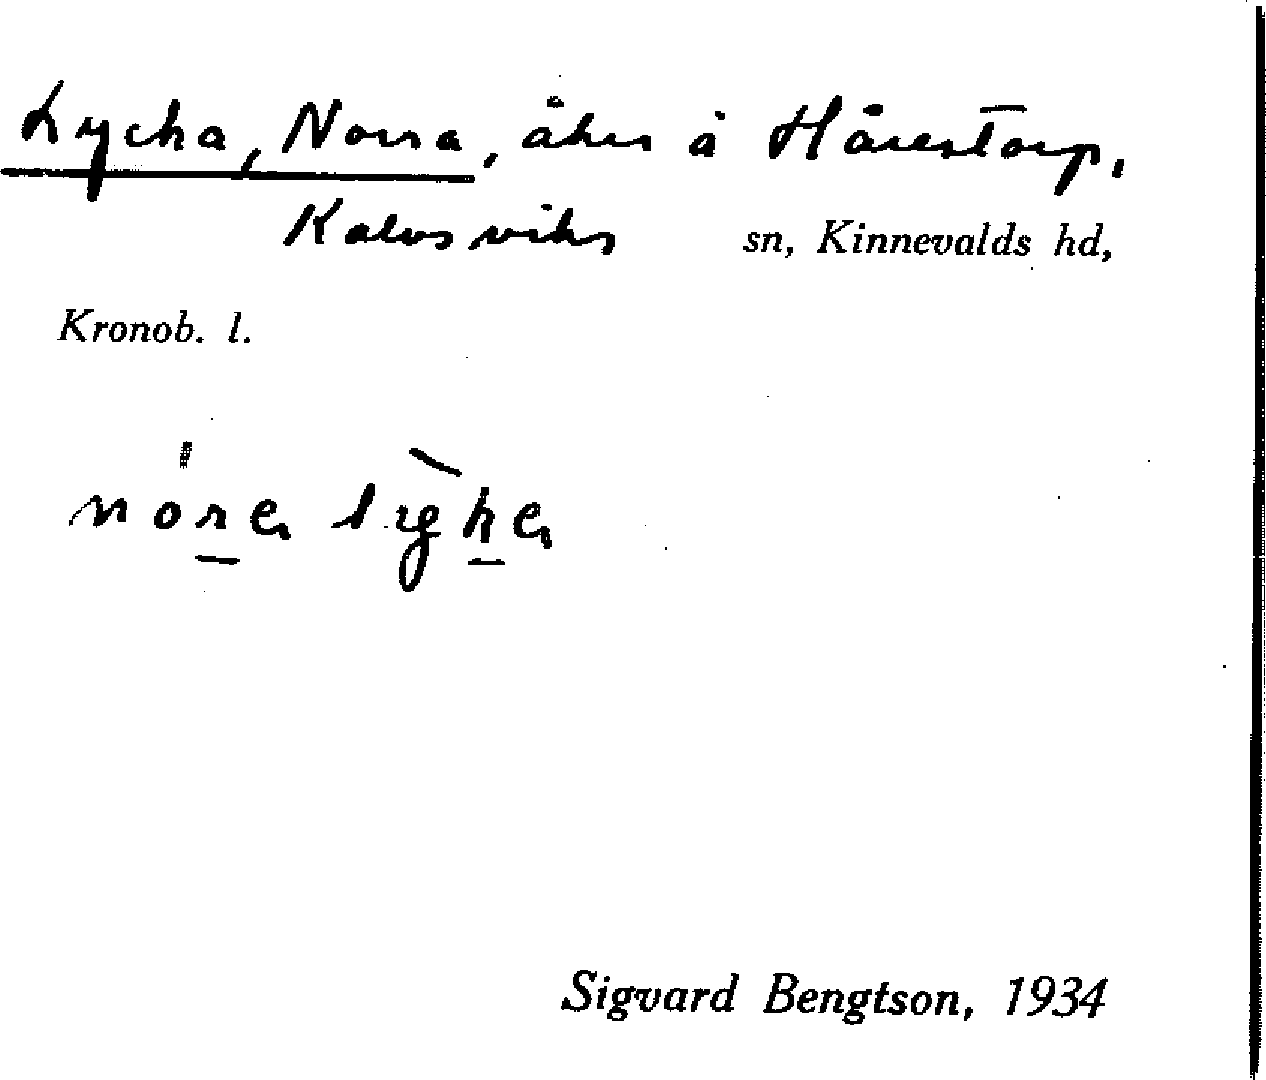 Lycka, Norra, åker å Hårestorp,
Kalvsviks sn, Kinnevalds hd,
Kronob. l.
Sigvard Bengtson, 1934